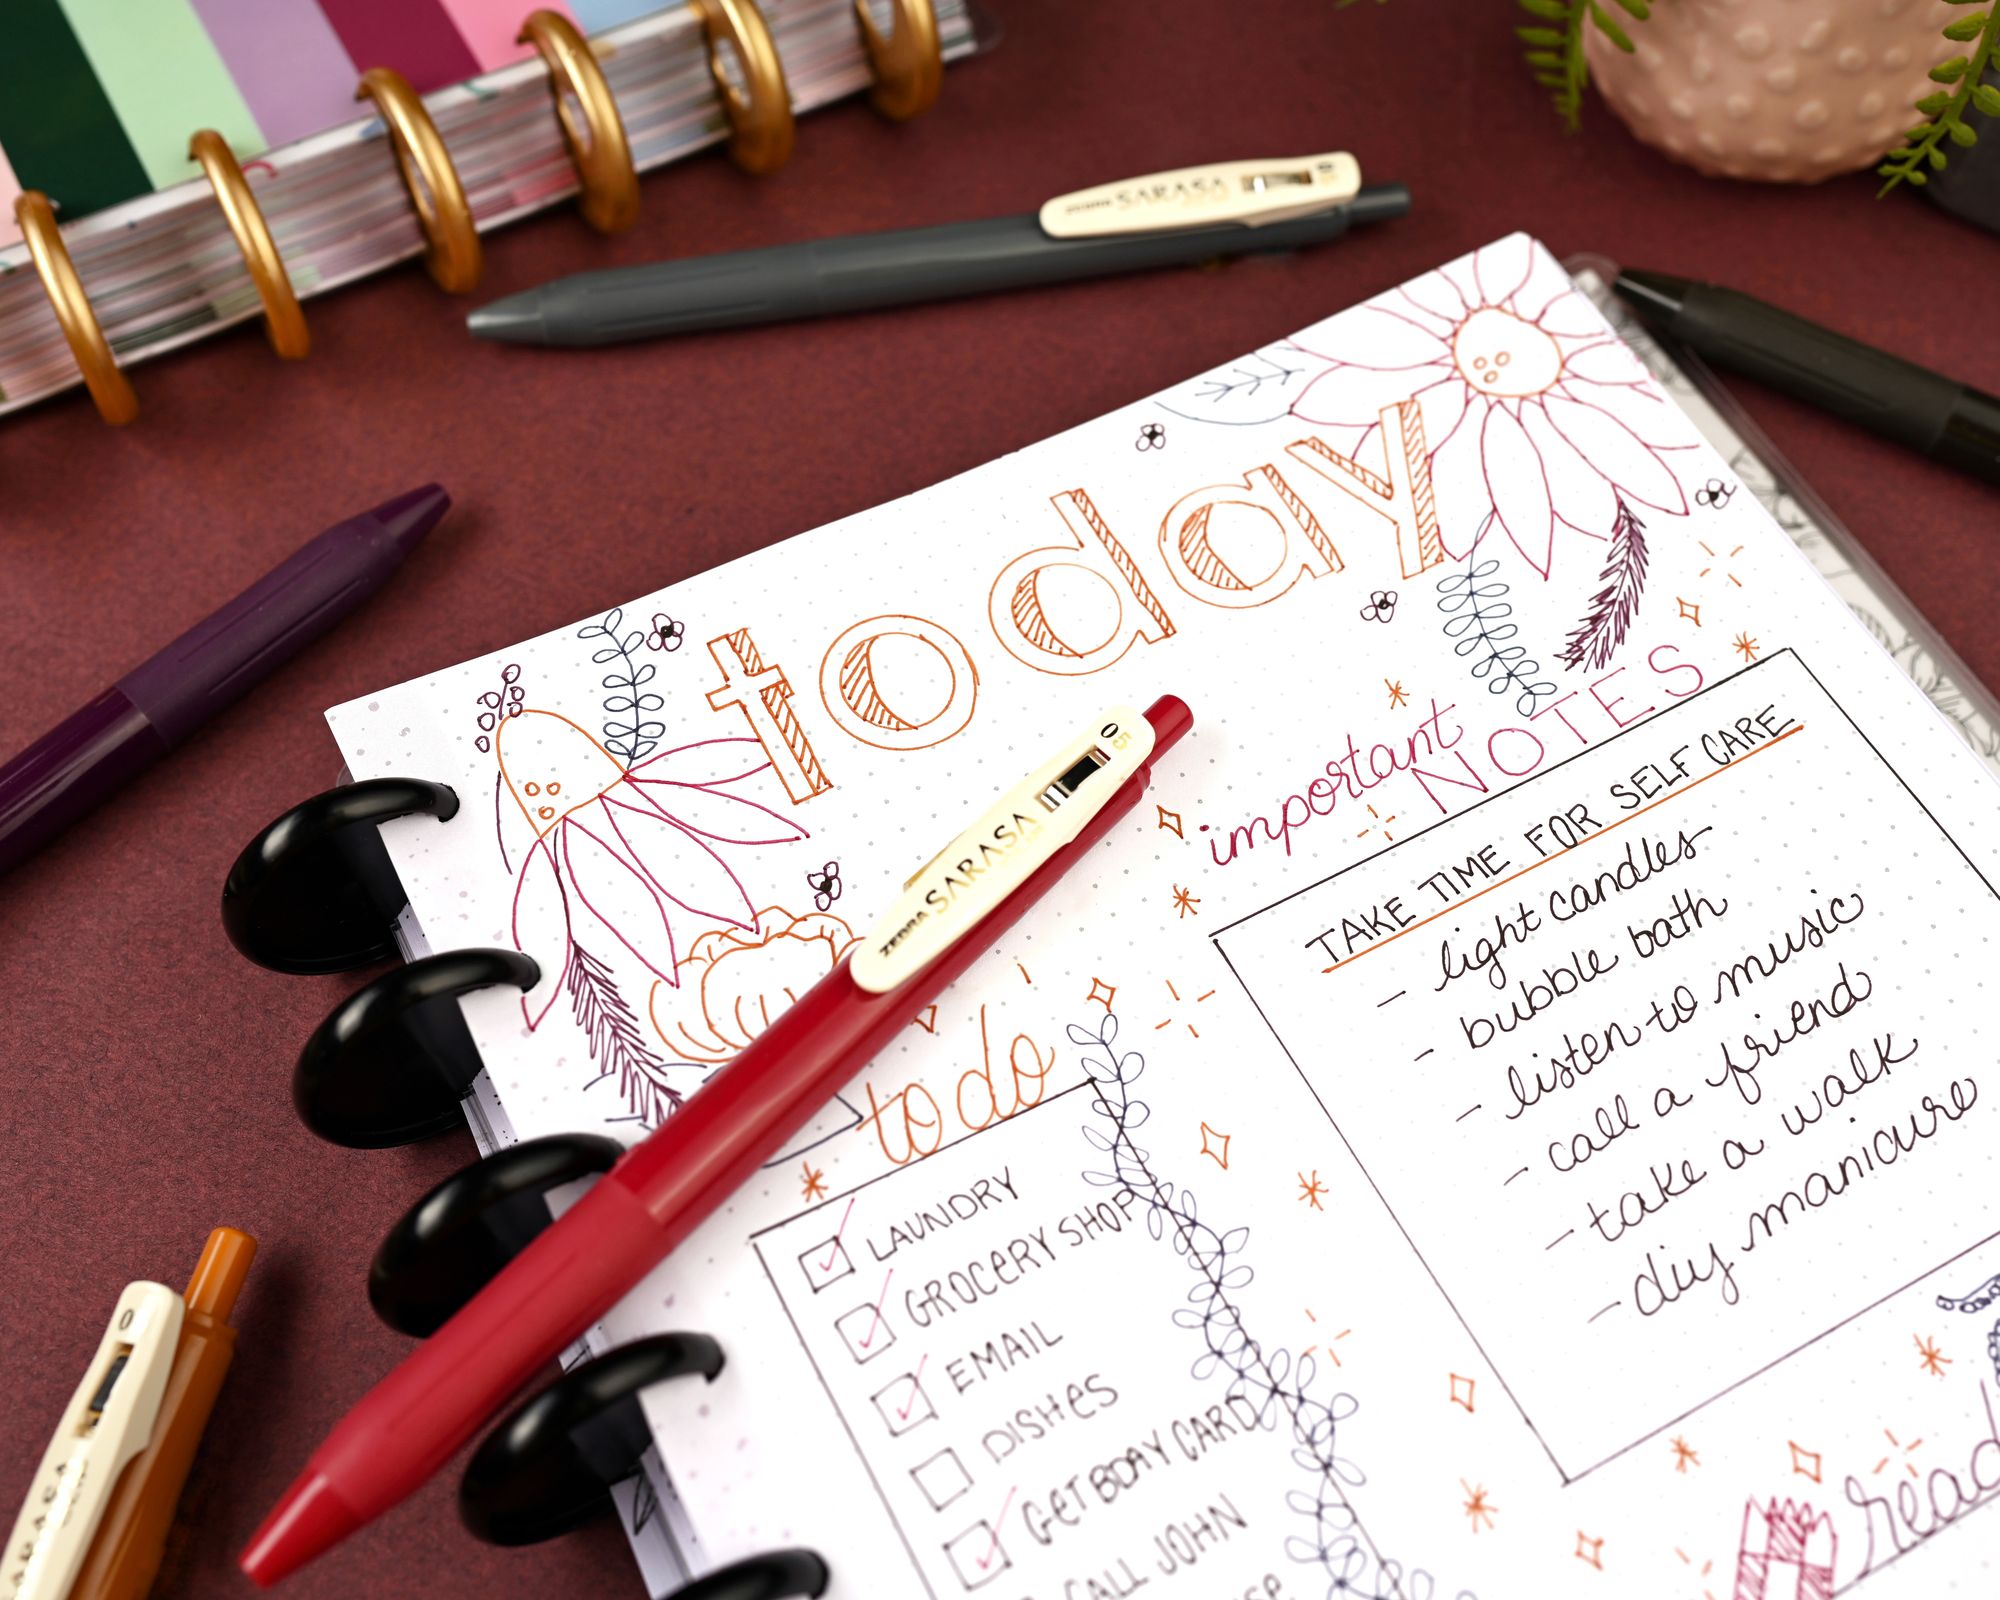 SARASA
0
today
important
NOTES
ZEBRA SARASA
05
TAKE TIME FOR SELF CARE
- light candles
- bubble bath
- listen to music
- call a friend
- take a walk
- diy manicure
to do
LAUNDRY
GROCERY SHOP
EMAIL
DISHES
GET BDAY CARD
CALL JOHN
read
0
SARASA